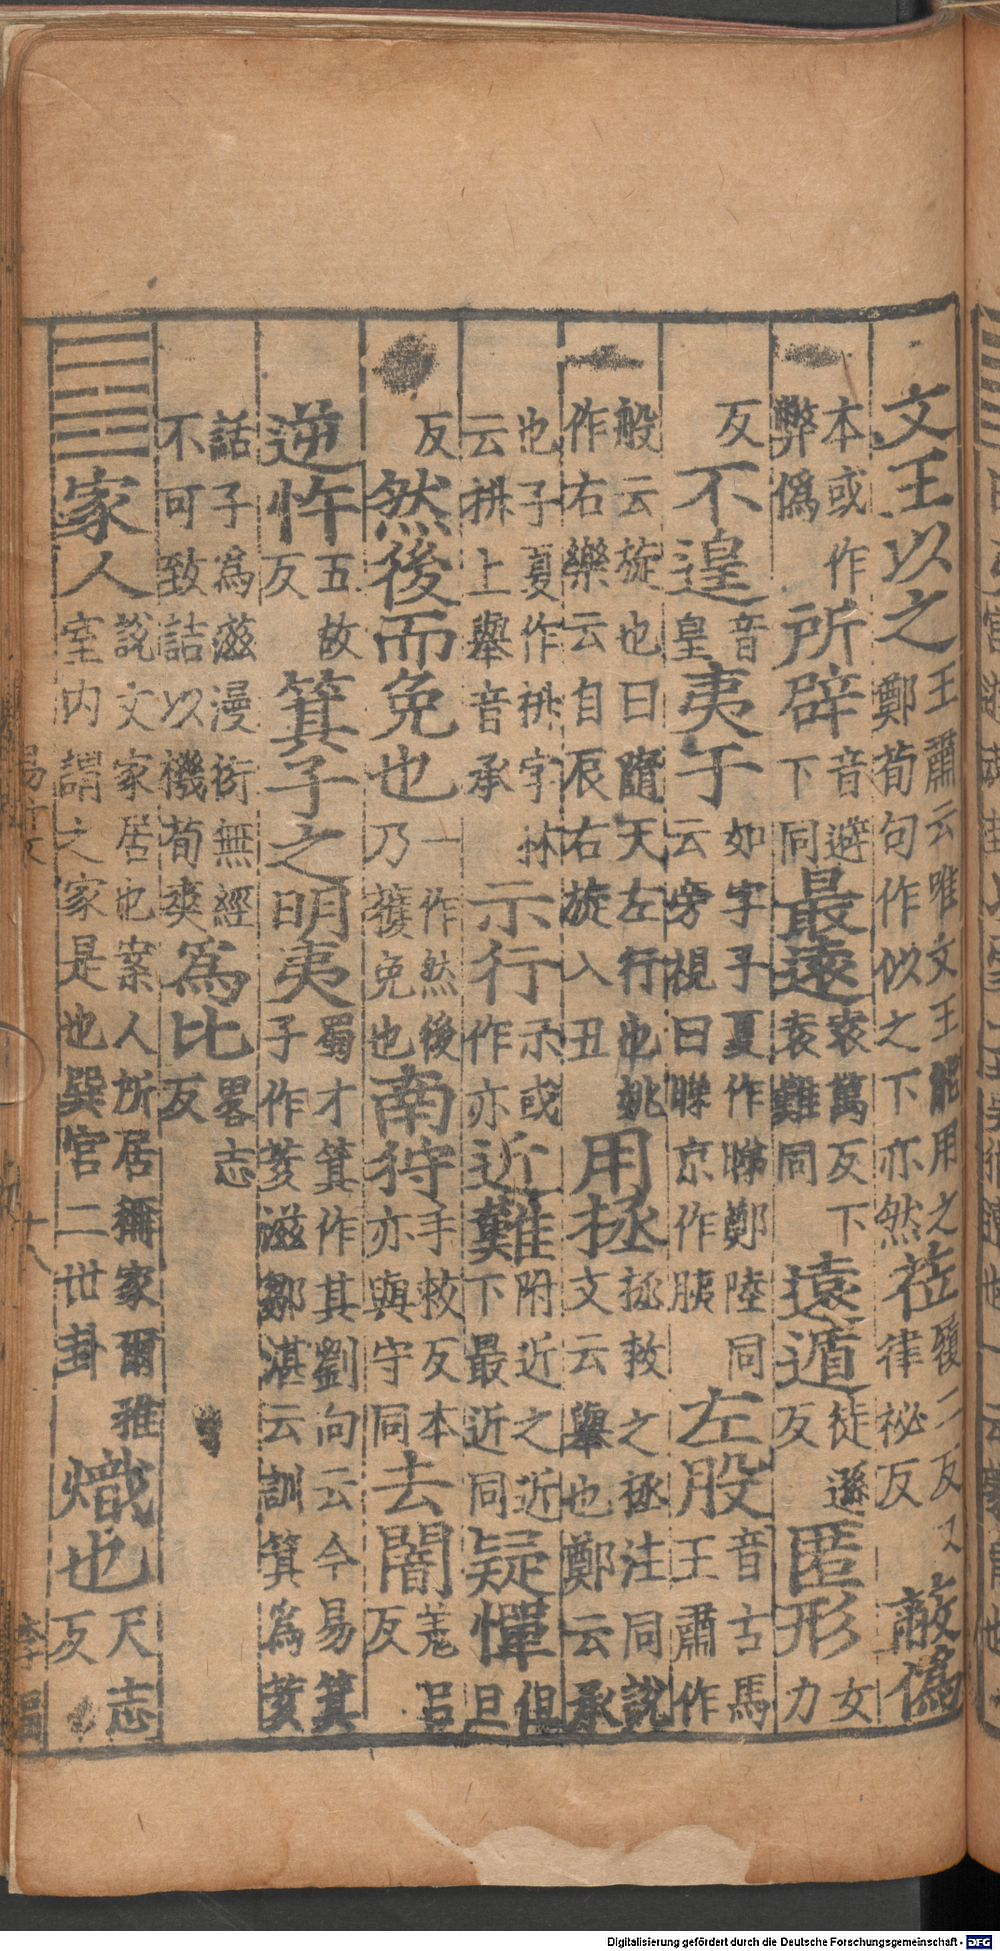 文王以之王肅云唯文王能用之鄭荀句作似之下亦然莅履二反又律祕反蔽偽
本或作弊偽所辟音避下同最遠袁萬反下袁難同遠遁徒遜反匿形女力
反不遑音皇夷于如字子夏作睇鄭陸同云旁視曰睇京作胰左股音古馬王肅作
般云旋也日隨天左行也姚作右樂云自辰右旋入丑用拯拯救之拯注同說文云舉也鄭云承
也子夏作抍字林云抍上舉音承示行示或作亦近難附近之近下最近同疑憚但旦
反然後而免也一作然後乃獲免也南狩手救反本亦與守同去闇羌呂反
逆忤五故反箕子之明夷蜀才箕作其劉向云今易箕子作荄滋鄒湛云訓箕為荄
話子為滋漫衍無經不可致詰以機荀爽為比毘志反
家人說文家居也案人所居稱家爾雅室内謂之家是也巽官二世卦熾也尺志反
Digitalisierung gefördert durch die Deutsche Forschungsgemeinschaft - DFG